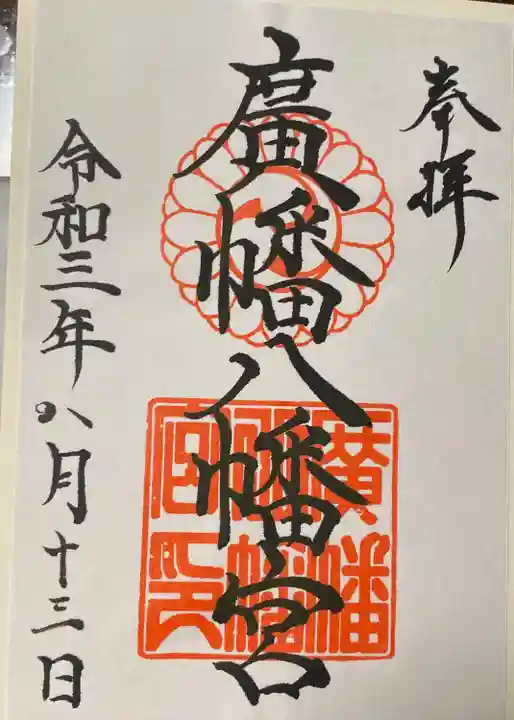 奉拝
廣幡八幡宮
廣幡
八幡
宮印
令和三年八月十三日